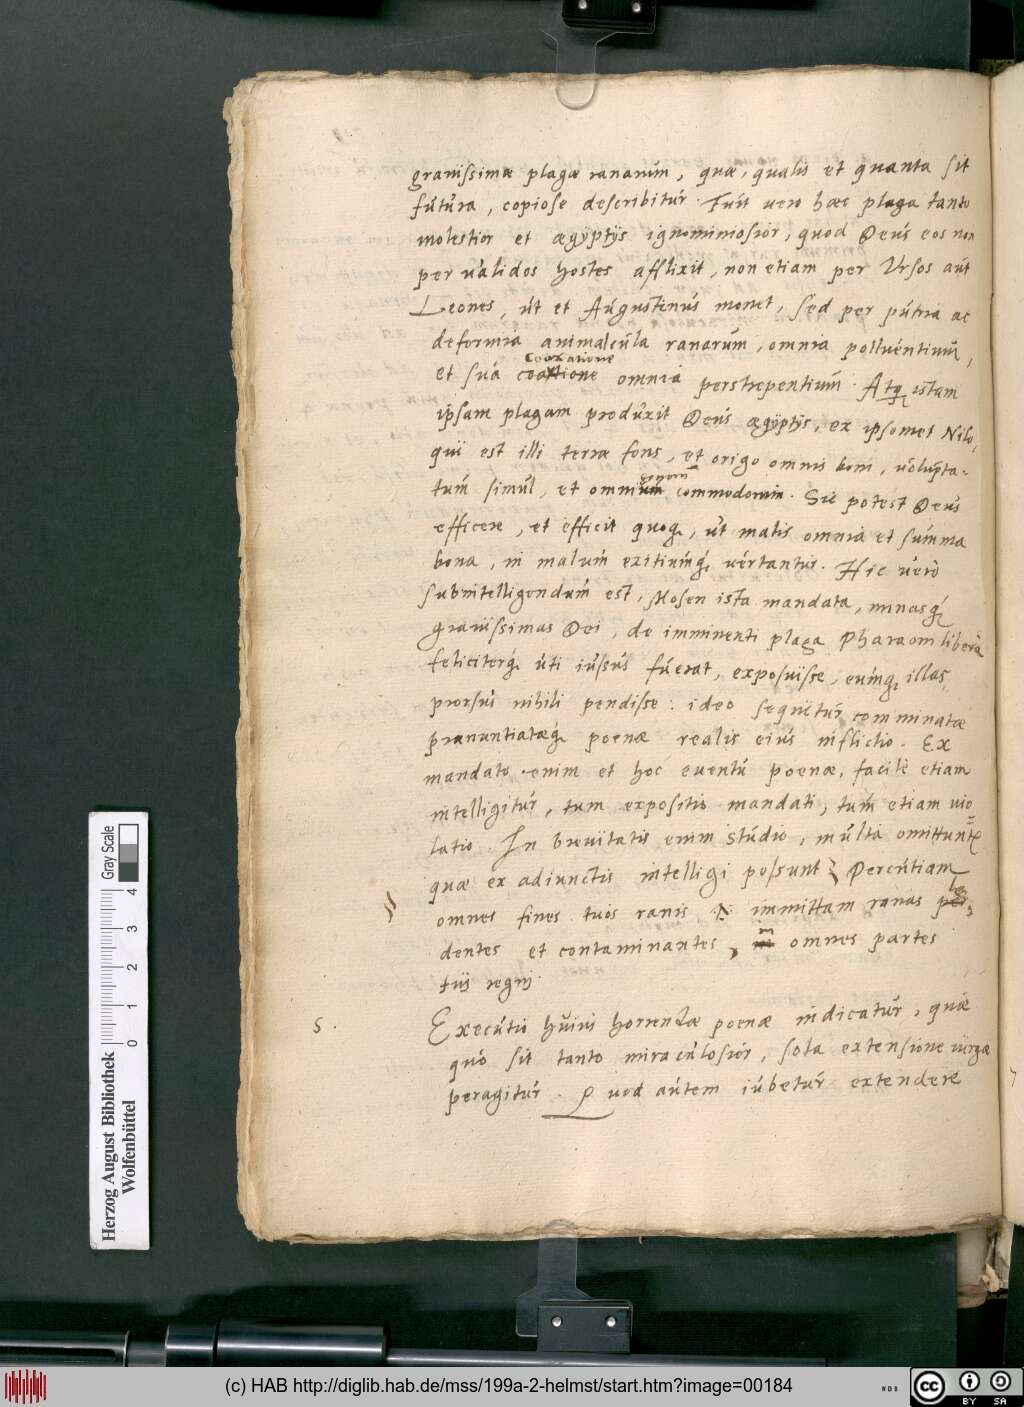 grauissimæ plagæ ranarum, quæ, qualis et quanta sit
futura, copiose describitur. Fuit vero hæc plaga tanto
molestior et ægÿptijs ignominiosior, quod Deus eos non
per validos hostes afflixit, non etiam per Ursos aut
Leones, ut et Augustinus monet, sed per putria ac
deformia animalcula ranarum, omnia polluentium,
coaxatione
et sua omnia perstrepentium. Atq istam
ipsam plagam produxit Deus ægÿptijs, ex ipsomet Nilo,
qui est illi terræ fons, et origo omnis boni, volupta-
tum simul, et omnium commodorum. Sic potest Deus
efficere, et efficit quoq, ut malis omnia et summa
bona, in malum exitiumq vertantur. Hic vero
subintelligendum est, Mosen ista mandata, minasq
grauissimas Dei, de imminenti plaga Pharaoni liberè
feliciterq uti iussus fuerat, exposuisse, eumq illas
prorsus nihili pendisse: ideo sequitur comminatæ
pronuntiatæq poenæ realis eius inflictio. Ex
mandato enim et hoc euentu poenæ, facile etiam
intelligitur, tum expositio mandati, tum etiam uio
latio. In breuitatis enim studio, multa omittuntr
quæ ex adiunctis intelligi possunt Percutiam
omnes fines tuos ranis immittam ranas
dentes et contaminantes, in omnes partes
tui regni.
5. Executio huius horrendæ poenæ indicatur, quæ
quo sit tanto miraculosior, sola extensione uirgæ
peragitur. Quod autem iubetur extendere
Herzog August Bibliothek
Wolfenbüttel
0 1 2 3 4
Gray Scale
(c) HAB http://diglib.hab.de/mss/199a-2-helmst/start.htm?image=00184
cc BY SA